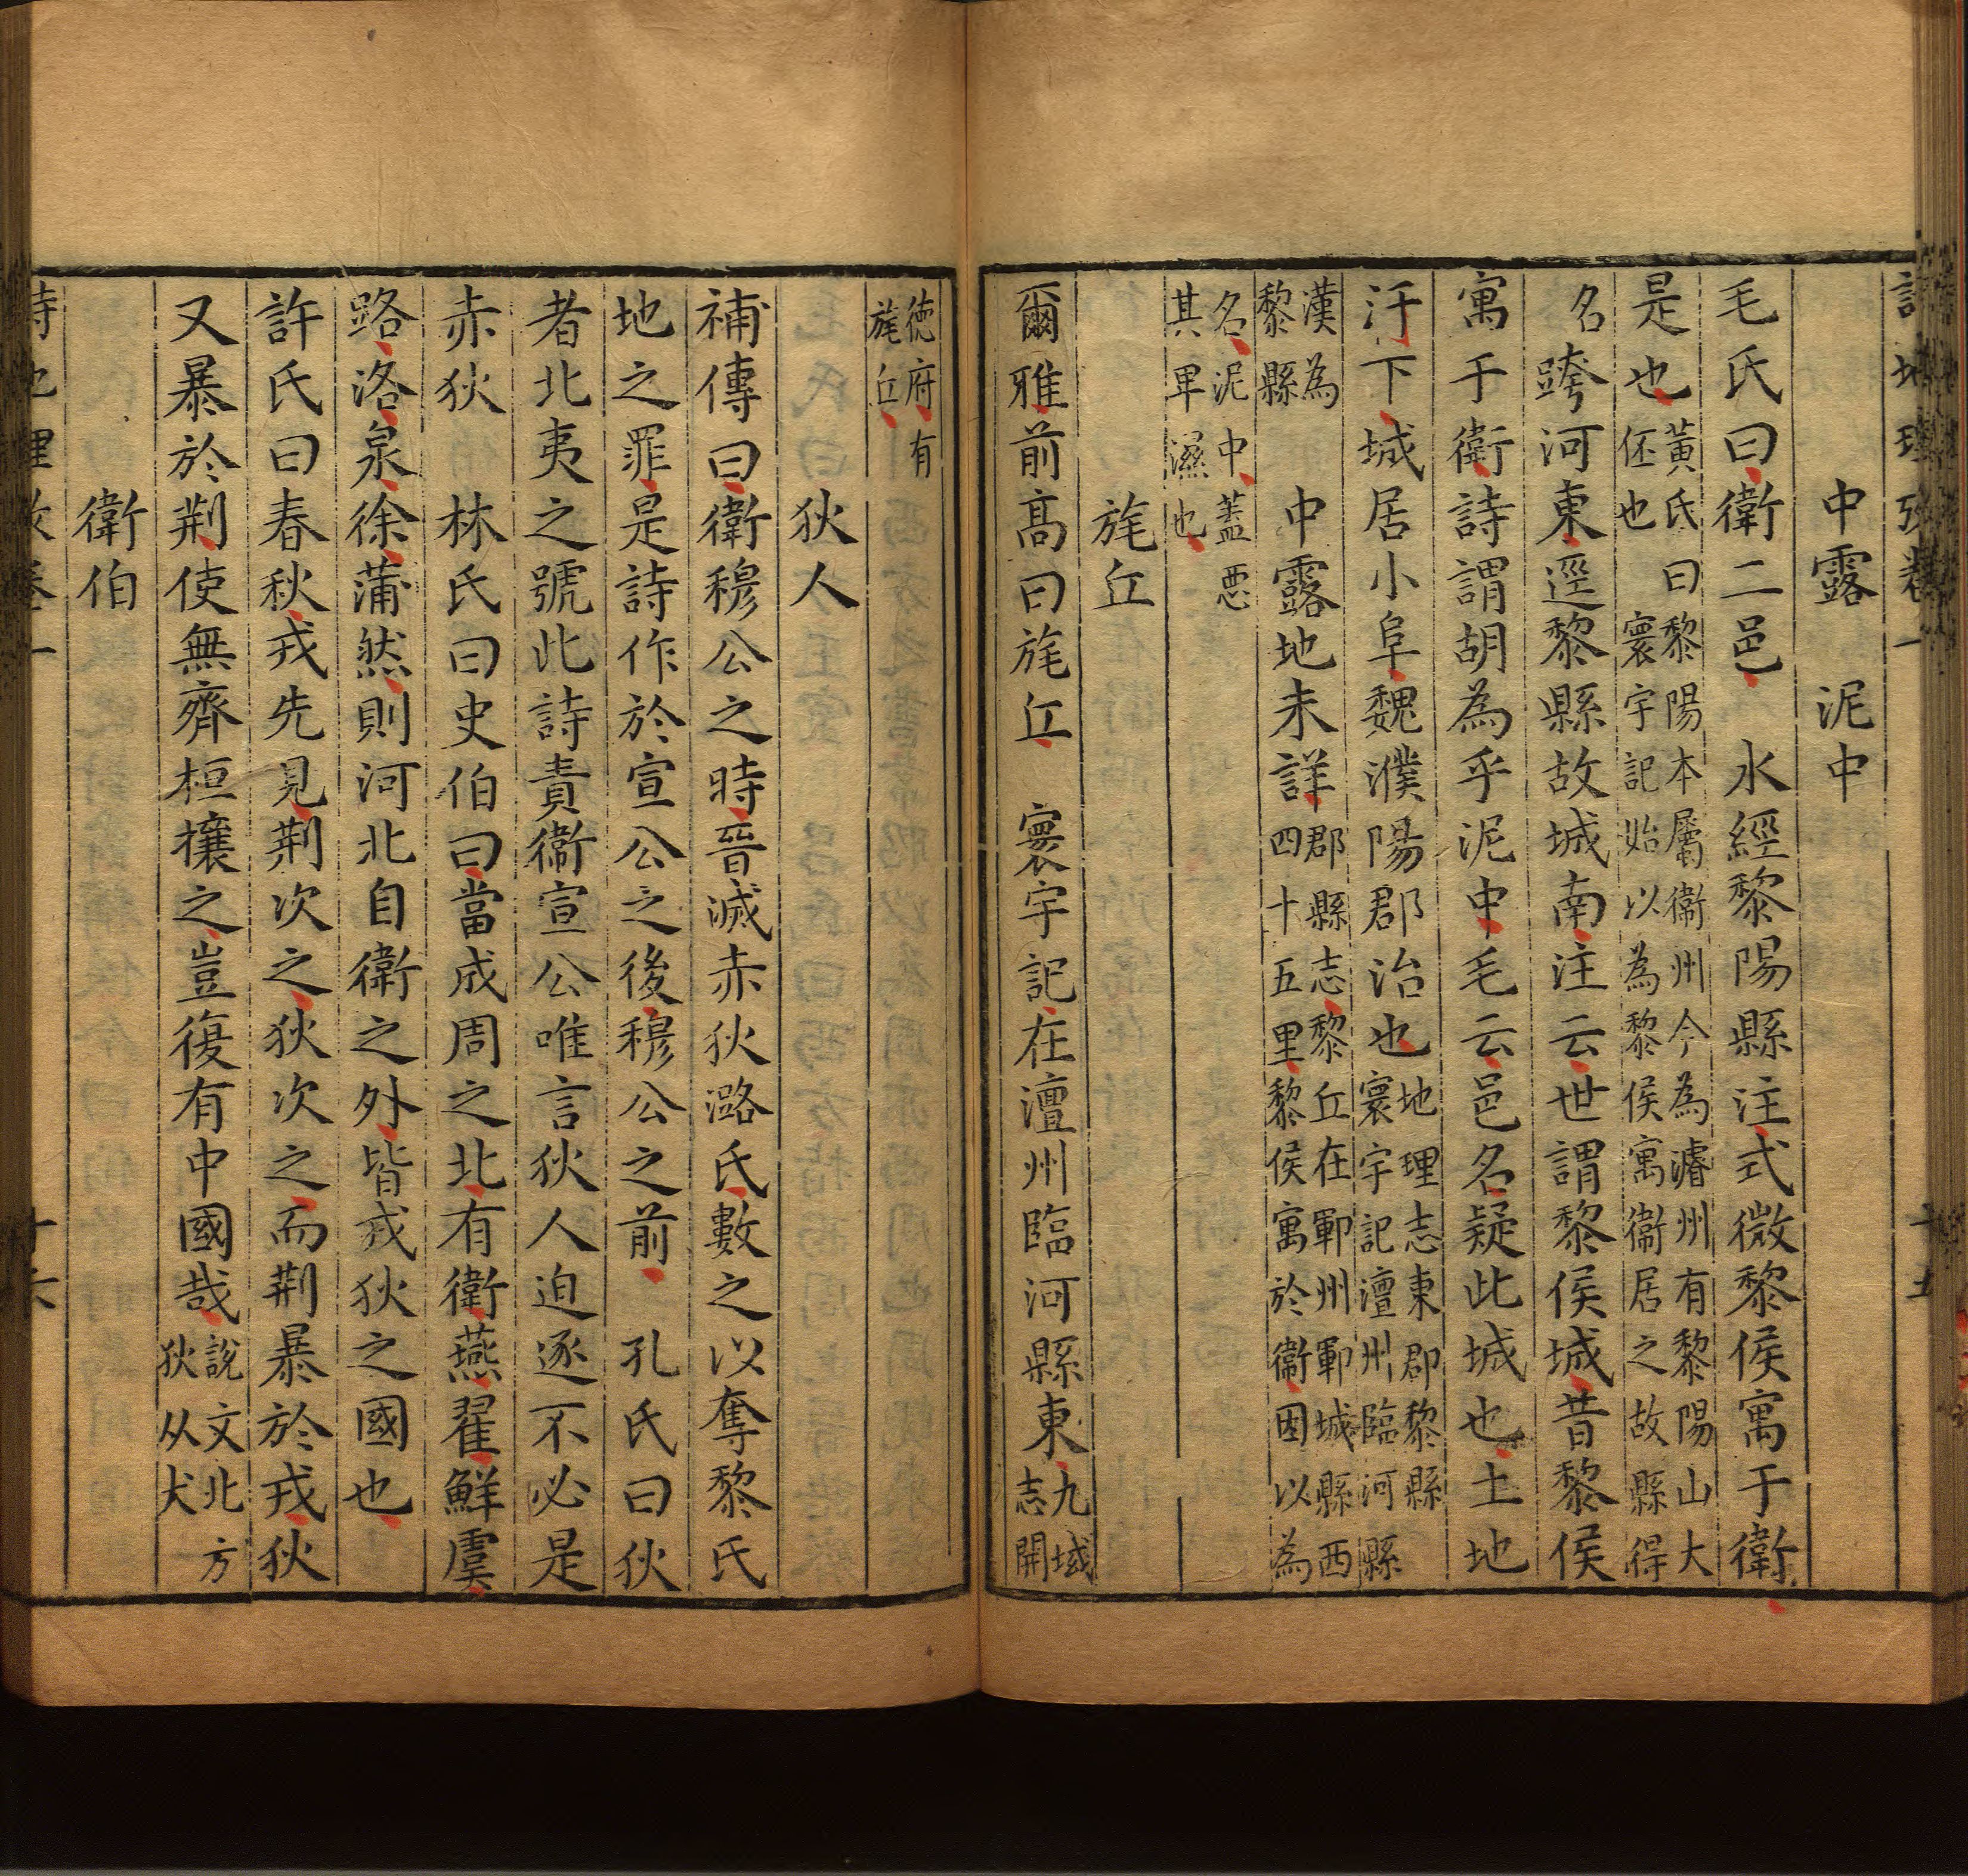 詩地理攷卷一 十五
中露 泥中
毛氏曰衛二邑 水經黎陽縣注式微黎侯寓于衛
是也黃氏曰黎陽本屬衛州今為濬州有黎陽山大伾也 寰宇記始以為黎侯寓衛居之故縣得
名跨河東逕黎縣故城南注云世謂黎侯城昔黎侯
寓于衛詩謂胡為乎泥中毛云邑名疑此城也土地
汙下城居小阜魏濮陽郡治也地理志東郡黎縣寰宇記澶州臨河縣
漢為黎縣 中露地未詳郡縣志黎丘在鄆州鄆城縣西四十五里黎侯寓於衛因以為
名泥中蓋惡其卑濕也
旄丘
爾雅前高曰旄丘 寰宇記在澶州臨河縣東九域志開
徳府有旄丘
狄人
補傳曰衛穆公之時晉滅赤狄潞氏數之以奪黎氏
地之罪是詩作於宣公之後穆公之前 孔氏曰狄
者北夷之號此詩責衛宣公唯言狄人迫逐不必是
赤狄 林氏曰史伯曰當成周之北有衛燕翟鮮虞
路洛泉徐蒲然則河北自衛之外皆戎狄之國也
許氏曰春秋戎先見荆次之狄次之而荆暴於戎狄
又暴於荆使無齊桓攘之豈復有中國哉說文北方狄从犬
衛伯
詩地理攷卷一 十六